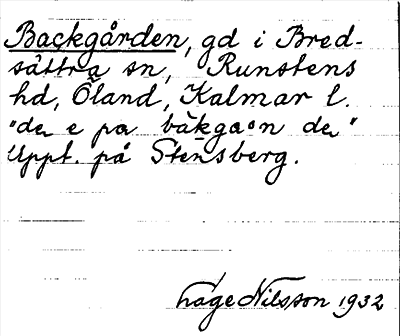 Backgården, gd i Bred-
sättra sn, Runstens
hd, Öland, Kalmar l.
"de e pa bakga°n de"
Uppt. på Stensberg.
Låge Nilsson 1932